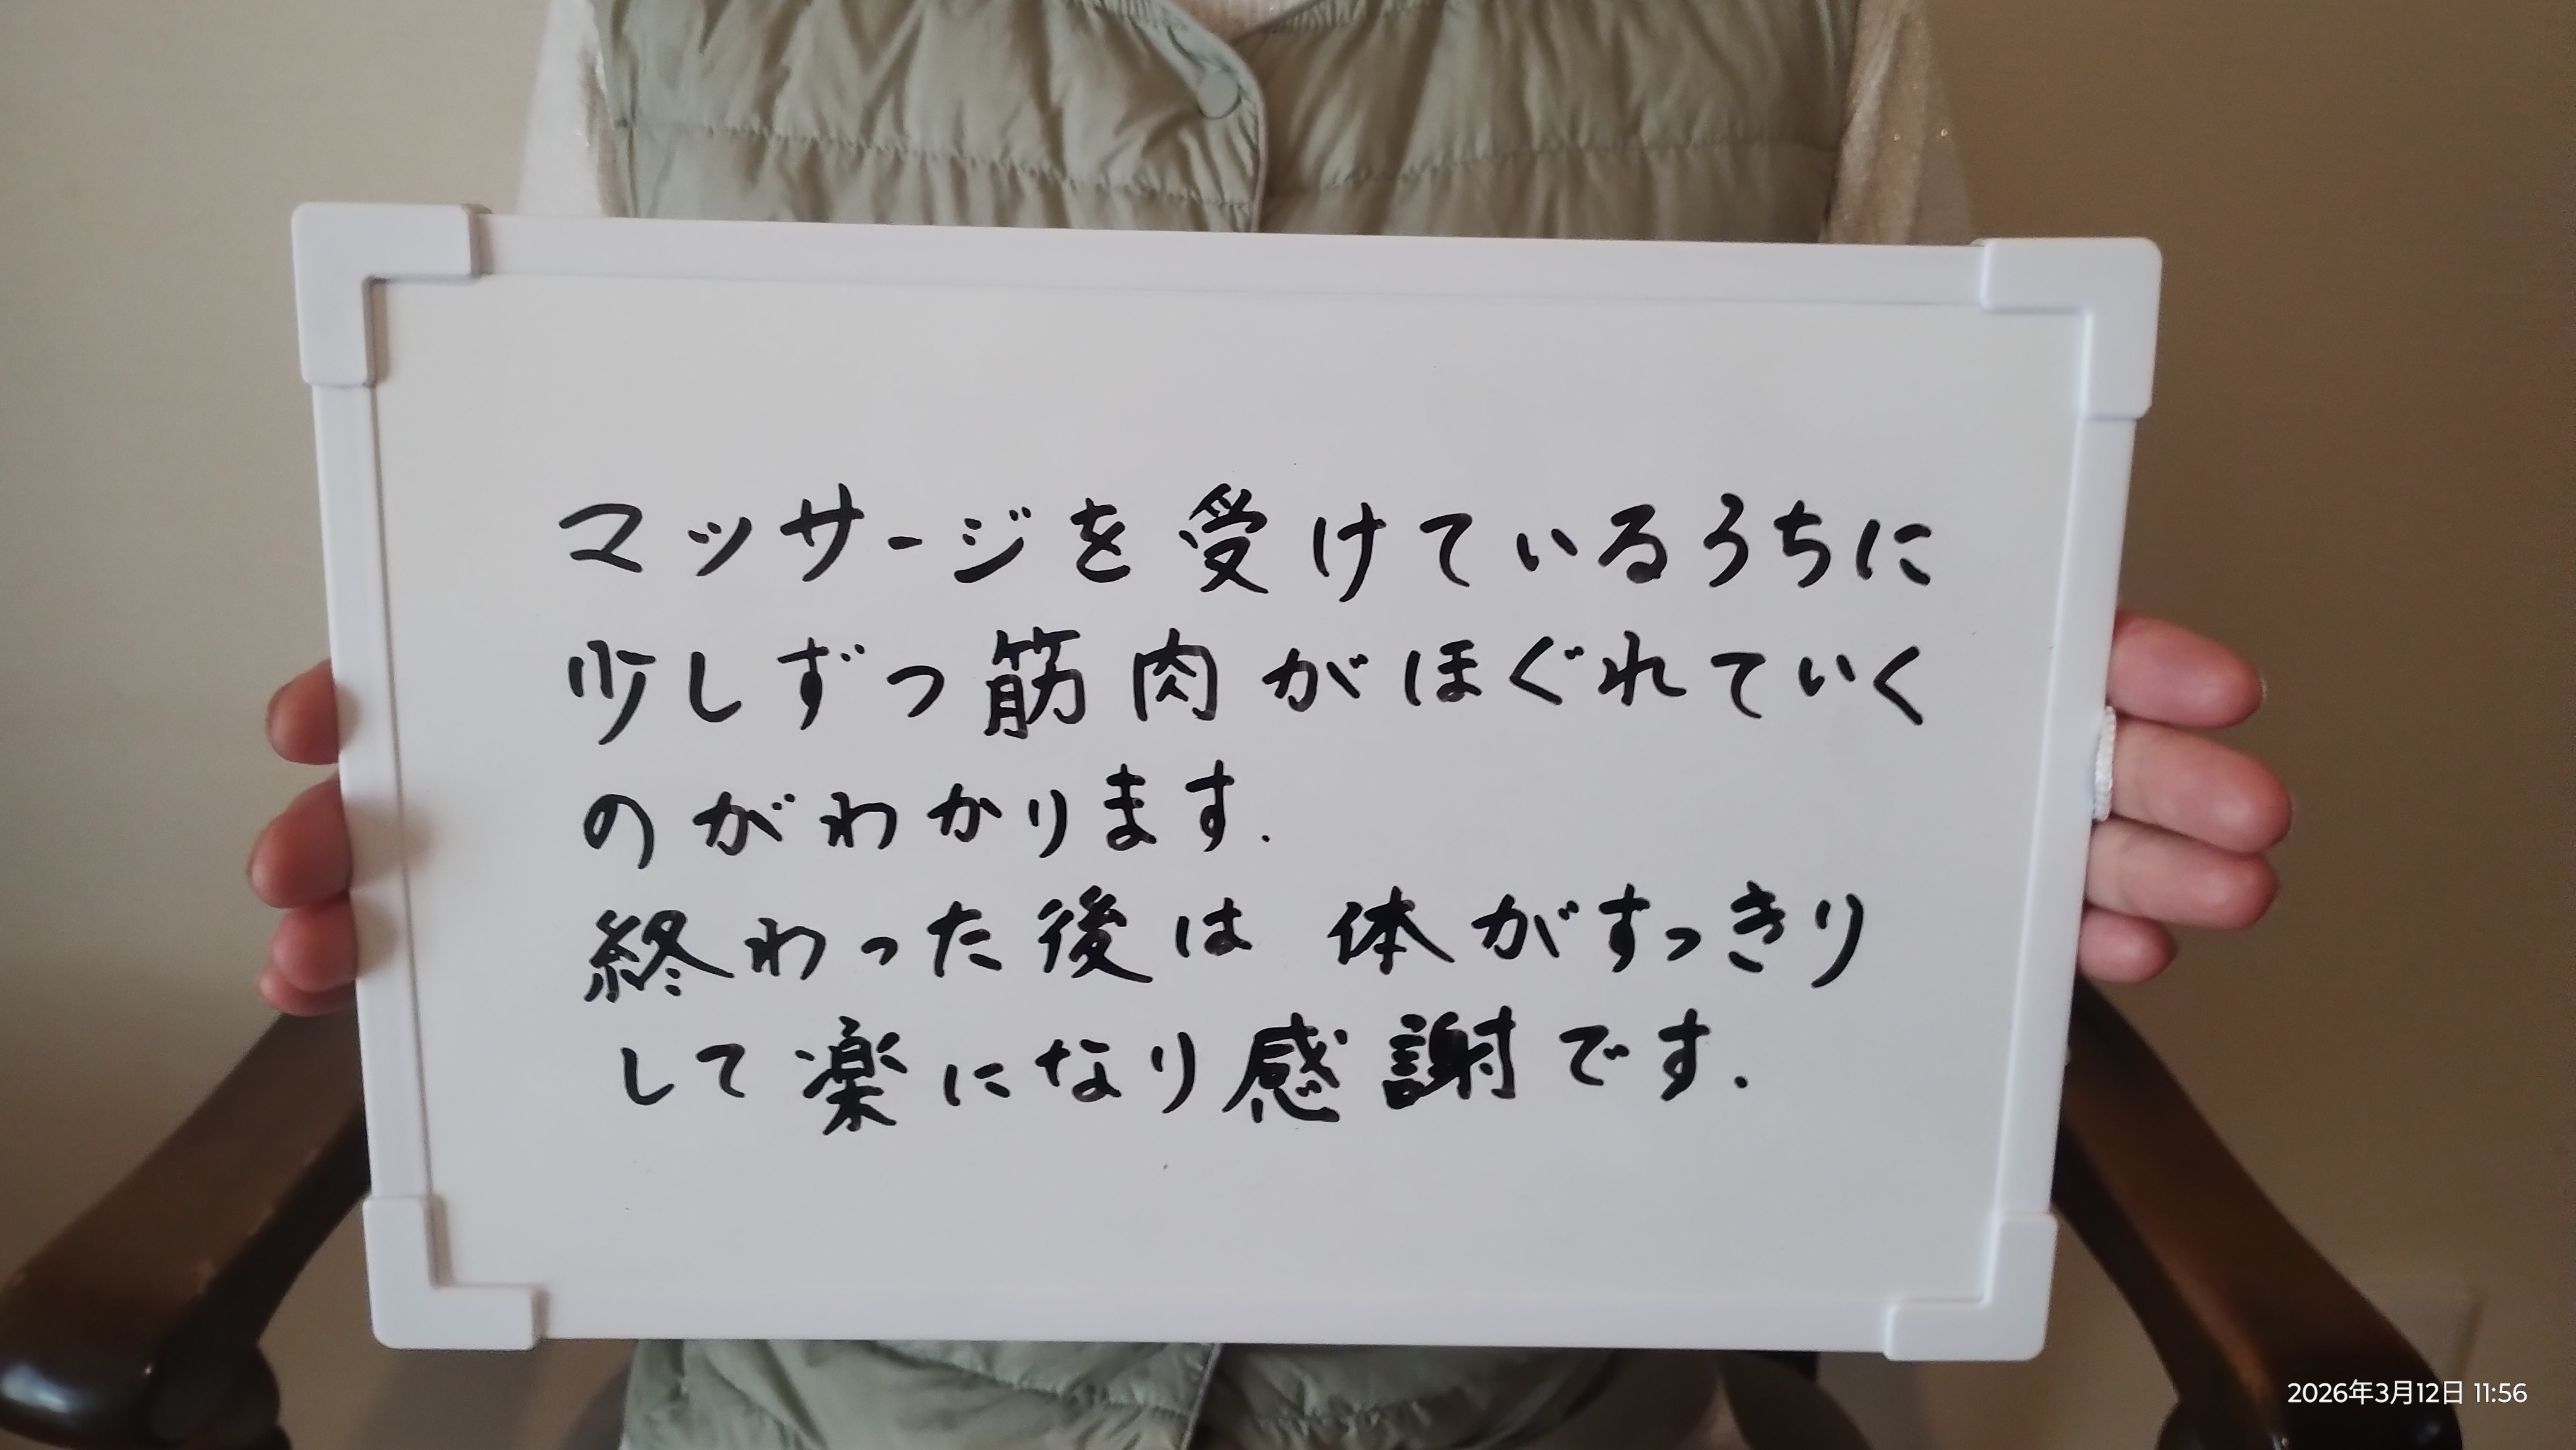 マッサージを受けているうちに
少しずつ筋肉がほぐれていく
のがわかります.
終わった後は 体がすっきり
して楽になり感謝です.
2026年3月12日 11:56